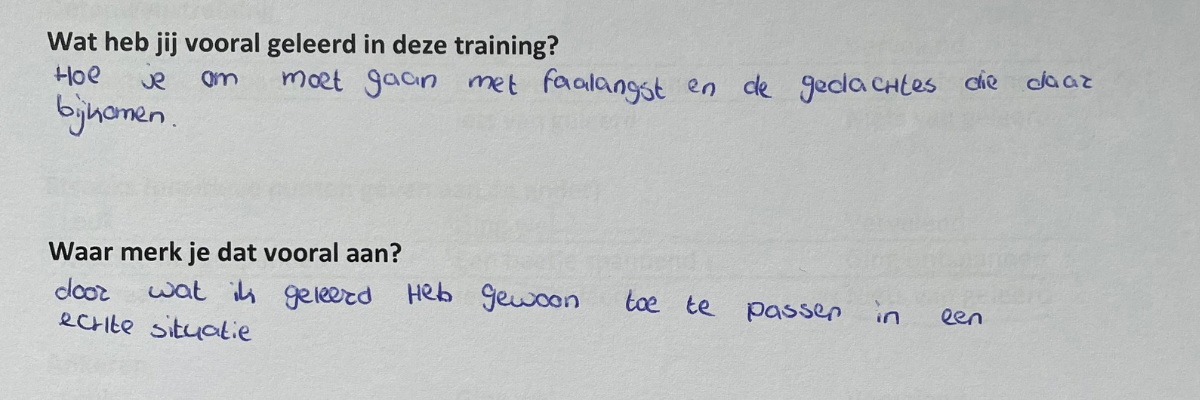 Wat heb jij vooral geleerd in deze training?
Hoe je om moet gaan met faalangst en de gedachtes die daar
bijkomen.
Waar merk je dat vooral aan?
door wat ik geleerd Heb gewoon toe te passen in een
echte situatie